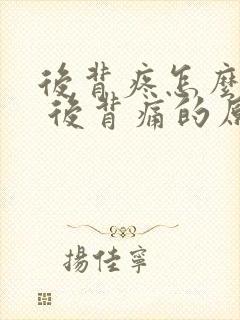 後背疼怎麼
後背痛的原
揚佳寧